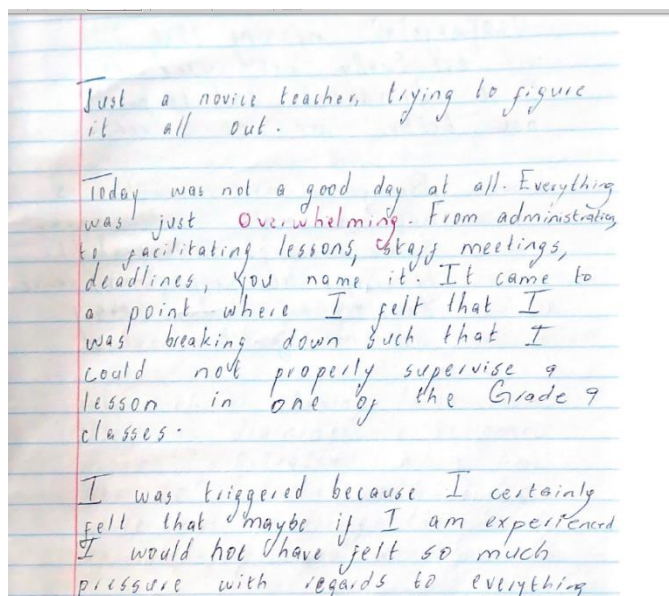 Just a novice teacher, trying to figure
it all out.
Today was not a good day at all. Everything
was just Overwhelming. From administration,
to facilitating lessons, staff meetings,
deadlines, you name it. It came to
a point where I felt that I
was breaking down such that I
could not properly supervise a
lesson in one of the Grade 9
classes.
I was triggered because I certainly
felt that maybe if I am experienced
I would not have felt so much
pressure with regards to everything